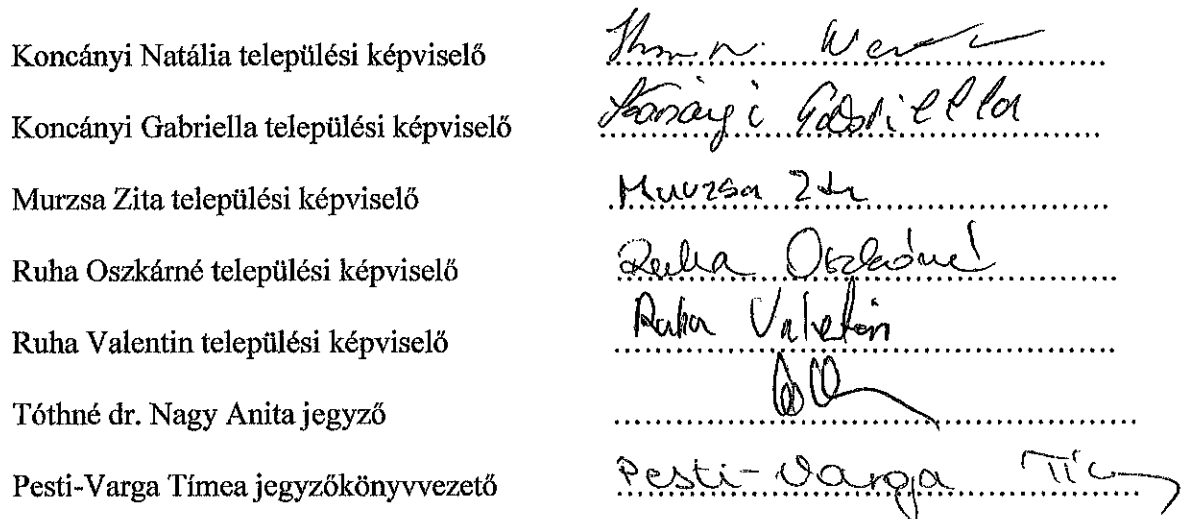 Koncányi Natália települési képviselő
Koncányi Gabriella települési képviselő Gabriella
Murzsa Zita települési képviselő Murzsa
Ruha Oszkárné települési képviselő Ruha Oszkárné
Ruha Valentin települési képviselő Ruha Valentin
Tóthné dr. Nagy Anita jegyző
Pesti-Varga Tímea jegyzőkönyvvezető Pesti-Varga